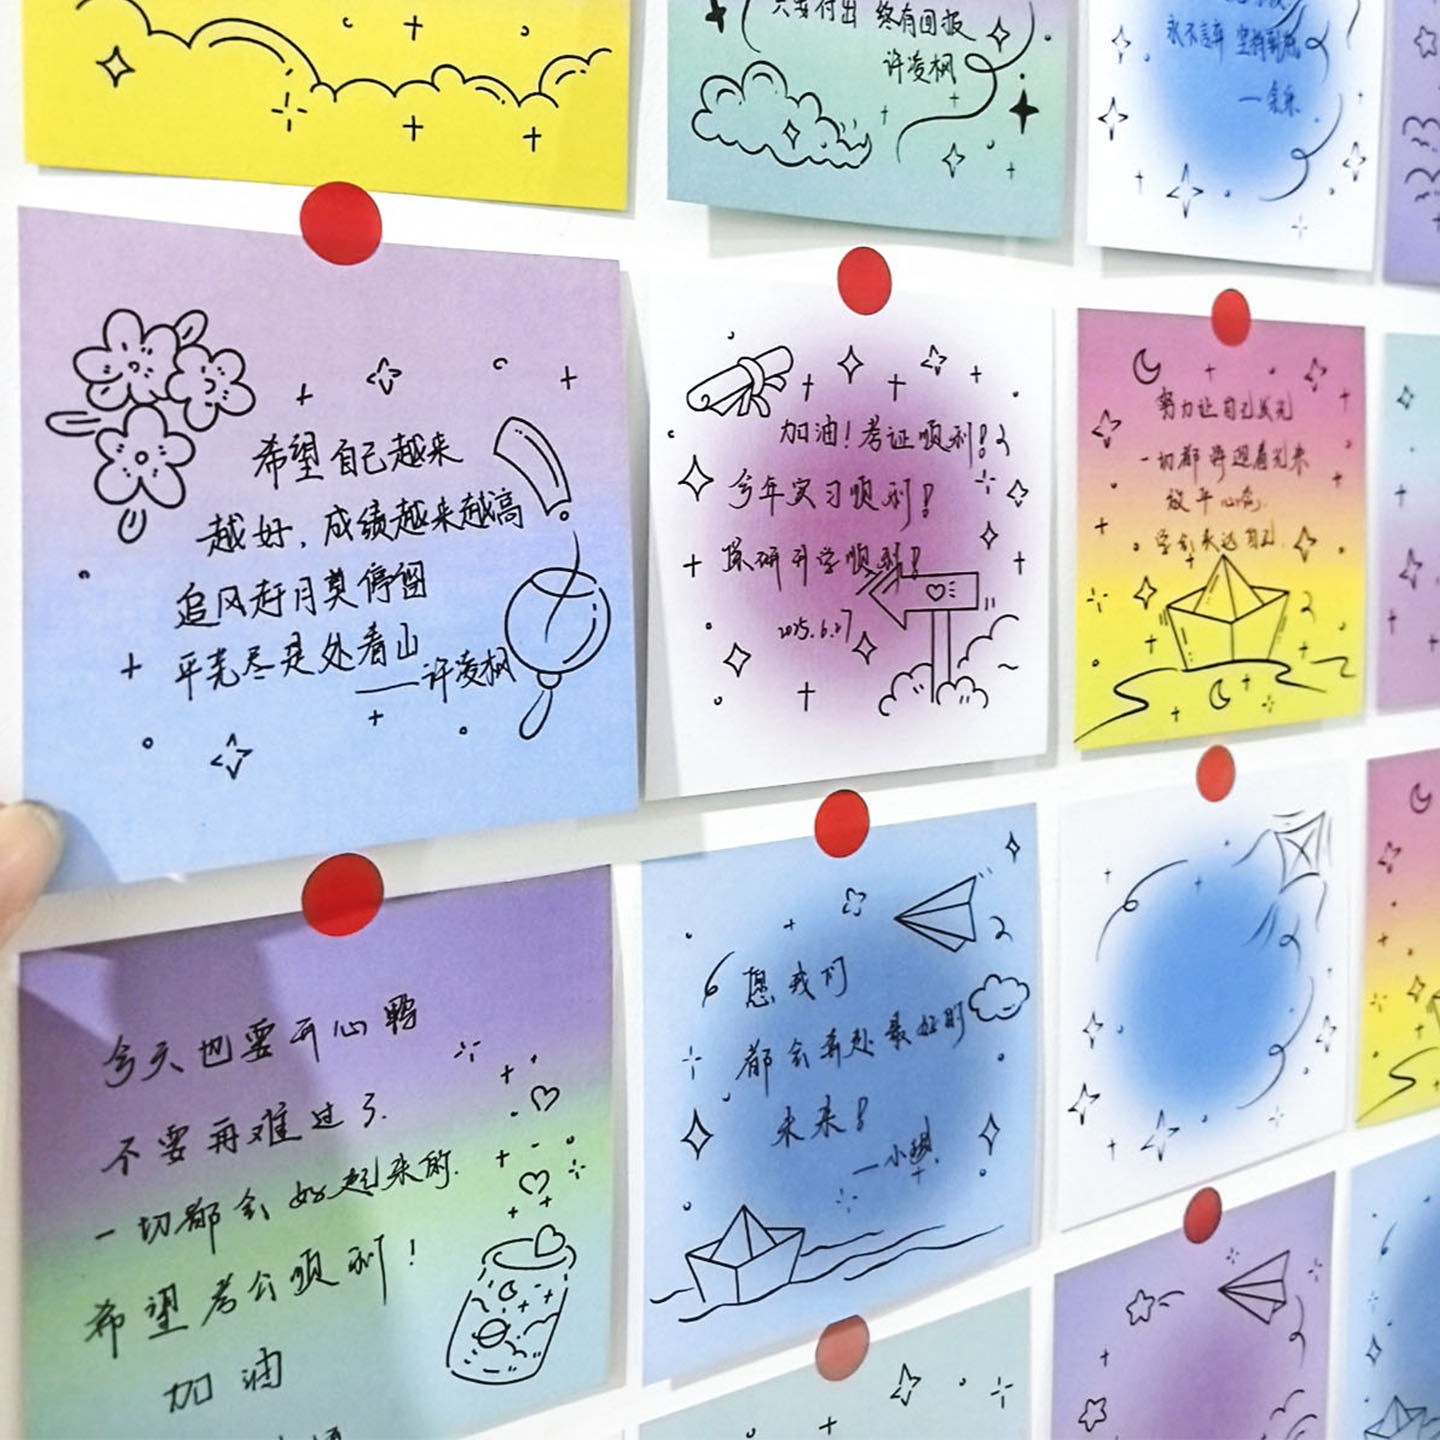 只要付出 终有回报
许凌枫
永不言弃
希望自己越来
越好，成绩越来越高
追风赶月莫停留
平芜尽是处看山
——许凌枫
加油！考证顺利！
今年实习顺利！
保研升学顺利！
2025.6.27
努力让自己发光
一切都将迎着光来
放平心态，
学会表达自己.
今天也要开心鸭
不要再难过了.
一切都会好起来的.
希望考公顺利！
加油
愿我们
都会奔赴最好的
未来！